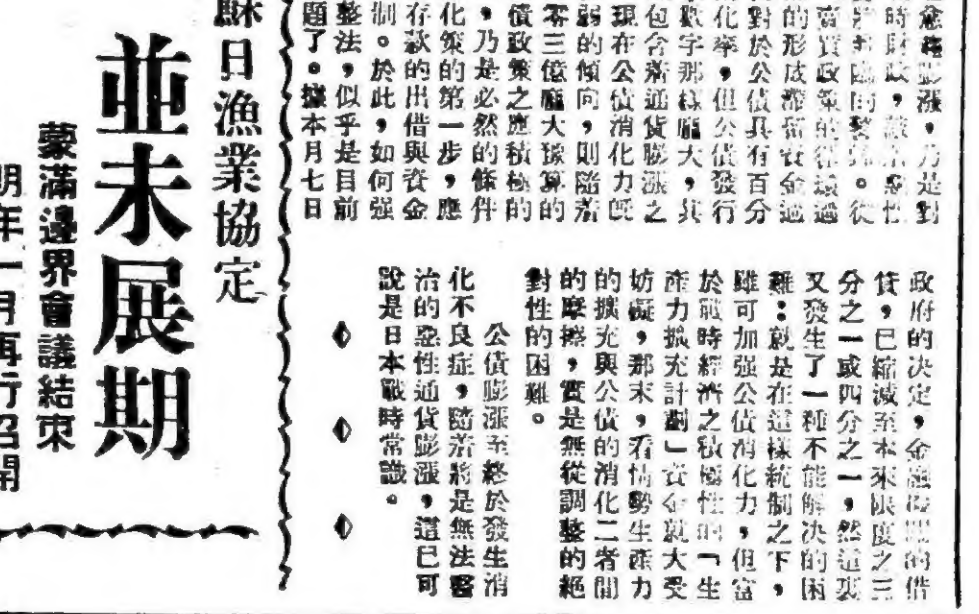 愈趨膨漲，乃是對
時財政，
從
賣貨政策的
的形成
對於公債具有百分
化率，但公債發行
數字那樣龐大，其
包含着通貨膨漲之
現在公債消化力既
弱的傾向，則隨着
零三億龐大豫算的
債政策之應積極的
，乃是必然的條件
化策的第一步，應
存款的出借與資金
制。於此，如何强
整法，似乎是目前
題了。據本月七日
政府的決定，金融
的借
貸，已縮減至本來限度之三
分之一或四分之一，然這裏
又發生了一種不能解決的困
難：就是在這樣統制之下，
雖可加强公債消化力，但富
於戰時經濟之積極性的「生
產力擴充計劃」資金就大受
妨礙，那末，看情勢生產力
的擴充與公債的消化二者間
的摩擦，實是無從調整的絕
對性的困難。
公債膨漲至終於發生消
化不良症，隨着將是無法醫
治的惡性通貨膨漲，這已可
說是日本戰時常識。
蘇日漁業協定
並未展期
蒙滿邊界會議結束
明年一月再行召開